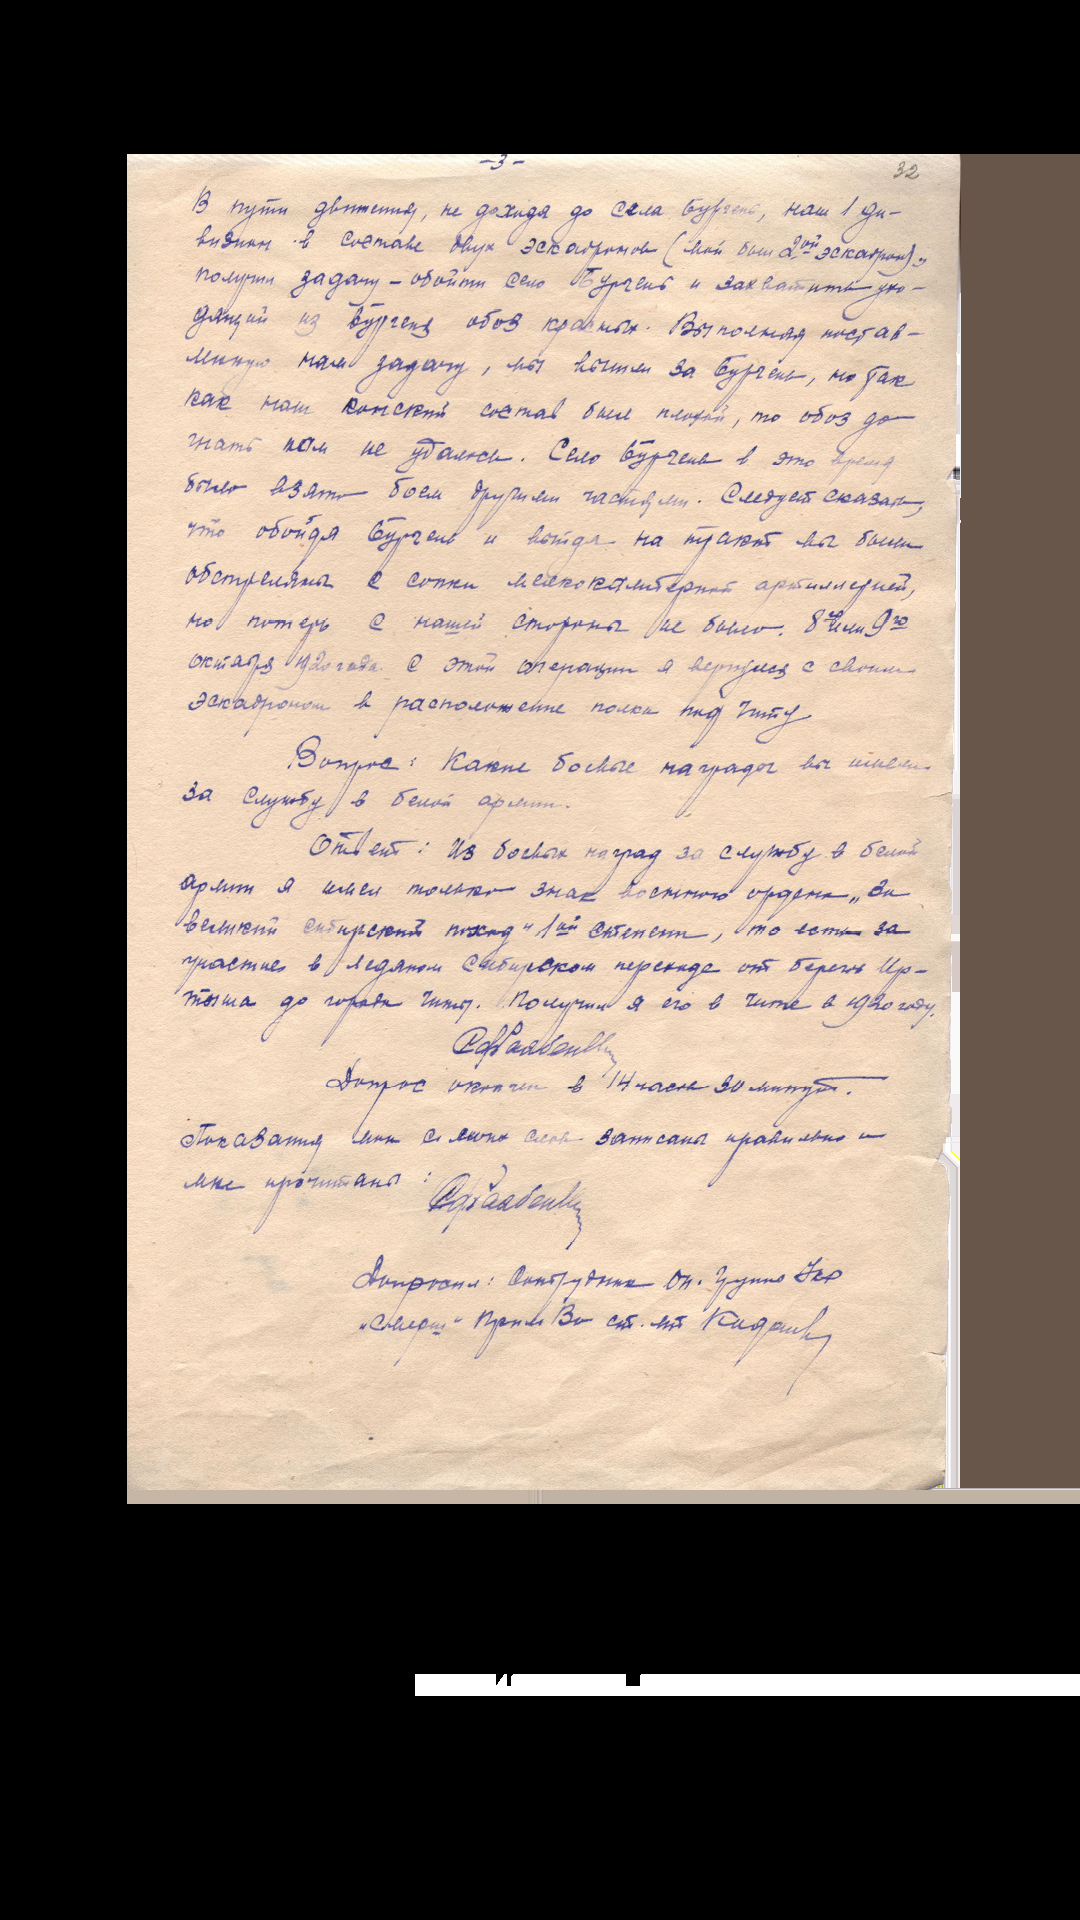 -3-
32
В пути движения, не доходя до села Бургень, наш 1 ди-
визион в составе двух эскадронов (мой был 2ой эскадрон),
получил задачу - обойти село Бургень и захватить ухо-
дящий из Бургеня обоз красных. Выполняя постав-
ленную нам задачу, мы вышли за Бургень, но так
как наш конский состав был плохой, то обоз до-
гнать нам не удалось. Село Бургень в это время
было взято боем другими частями. Следует сказать,
что обойдя Бургень и выйдя на тракт мы были
обстреляны с сопки мелкокалиберной артиллерией,
но потерь с нашей стороны не было. 8го или 9го
октября 1920 года с этой операции я вернулся с своим
эскадроном в расположение полка под Читу
Вопрос: Какие боевые награды вы имели
за службу в белой армии.
Ответ: Из боевых наград за службу в белой
армии я имел только знак военного ордена „За
великий сибирский поход" 1ой степени, то есть за
участие в ледяном Сибирском переходе от берегов Ир-
тыша до города Читы. Получил я его в Чите в 1920 году.
Допрос окончен в 14 часов 30 минут.
Показания мои с моих слов записаны правильно и
мне прочитаны:
Допросил: Сотрудник Оп. Группы Укр
„Смерш" ПримВо ст. лт